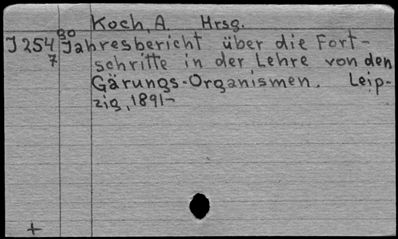 Koch, A. Hrsg.
J 254 80 Jahresbericht über die Fort-
7 schritte in der Lehre von den
Gärungs-Organismen. Leip-
zig, 1891-
+